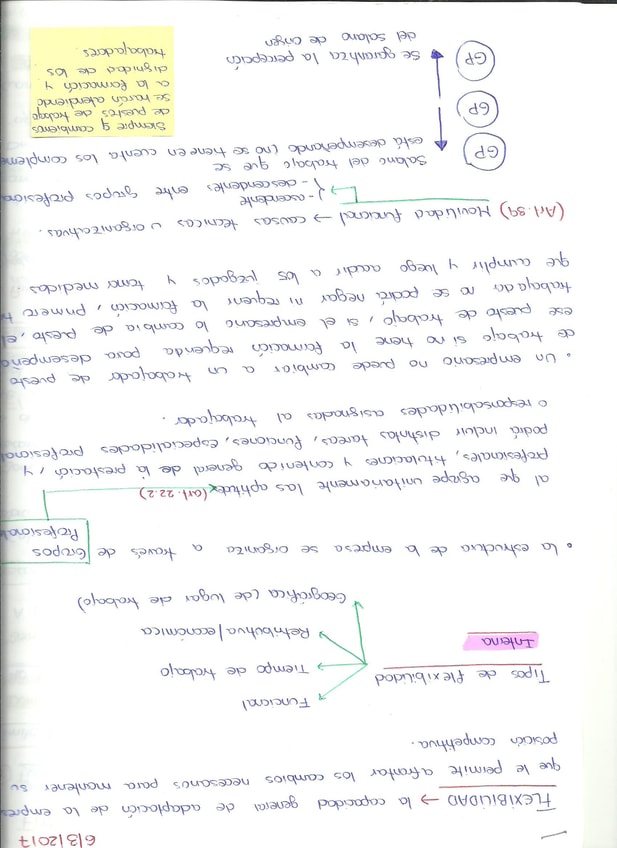 6/3/2017
FLEXIBILIDAD → la capacidad general de adaptación de la empres
que le permite afrontar los cambios necesarios para mantener su
posición competitiva.
Tipos de flexibilidad
Interna
Funcional
Tiempo de trabajo
Retributiva/económica
Geográfica (de lugar de trabajo)
• La estructura de la empresa se organiza a través de Grupos
Profesional
al que agrupe unitariamente las aptitudes (art. 22.2)
profesionales, titulaciones y contenido general de la prestación, y
podrá incluir distintas tareas, funciones, especialidades profesional
o responsabilidades asignadas al trabajador.
• Un empresario no puede cambiar a un trabajador de puesto
de trabajo si no tiene la formación requerida para desempeña
ese puesto de trabajo, si el empresario lo cambia de puesto, el
trabajador no se podrá negar ni requerir la formación, primero t
que cumplir y luego acudir a los juzgados y tomar medidas.
(Art. 39) Movilidad funcional → causas técnicas u organizativas.
- ascendente
- descendentes entre grupos profesion
Salario del trabajo que se
está desempeñando (no se tiene en cuenta los compleme
GP
GP
GP
Se garantiza la percepción
del salario de origen
Siempre q cambiemos
de puestos de trabajo
se harán atendiendo
a la formación y
dignidad de los
trabajadores.